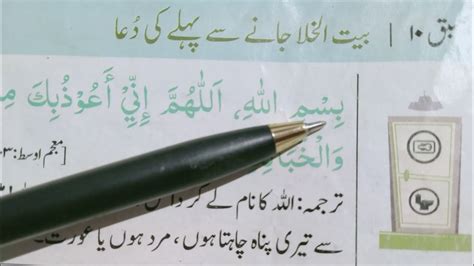 سبق ۱۰ | بیت الخلا جانے سے پہلے کی دُعا
بِسْمِ اللّٰهِ، اَللّٰهُمَّ إِنِّيْ أَعُوْذُبِكَ
وَالْخَبَا
[معجم اوسط:
ترجمہ: اللہ کا نام لے کر
سے تیری پناہ چاہتا ہوں، مرد ہوں یا عورت۔